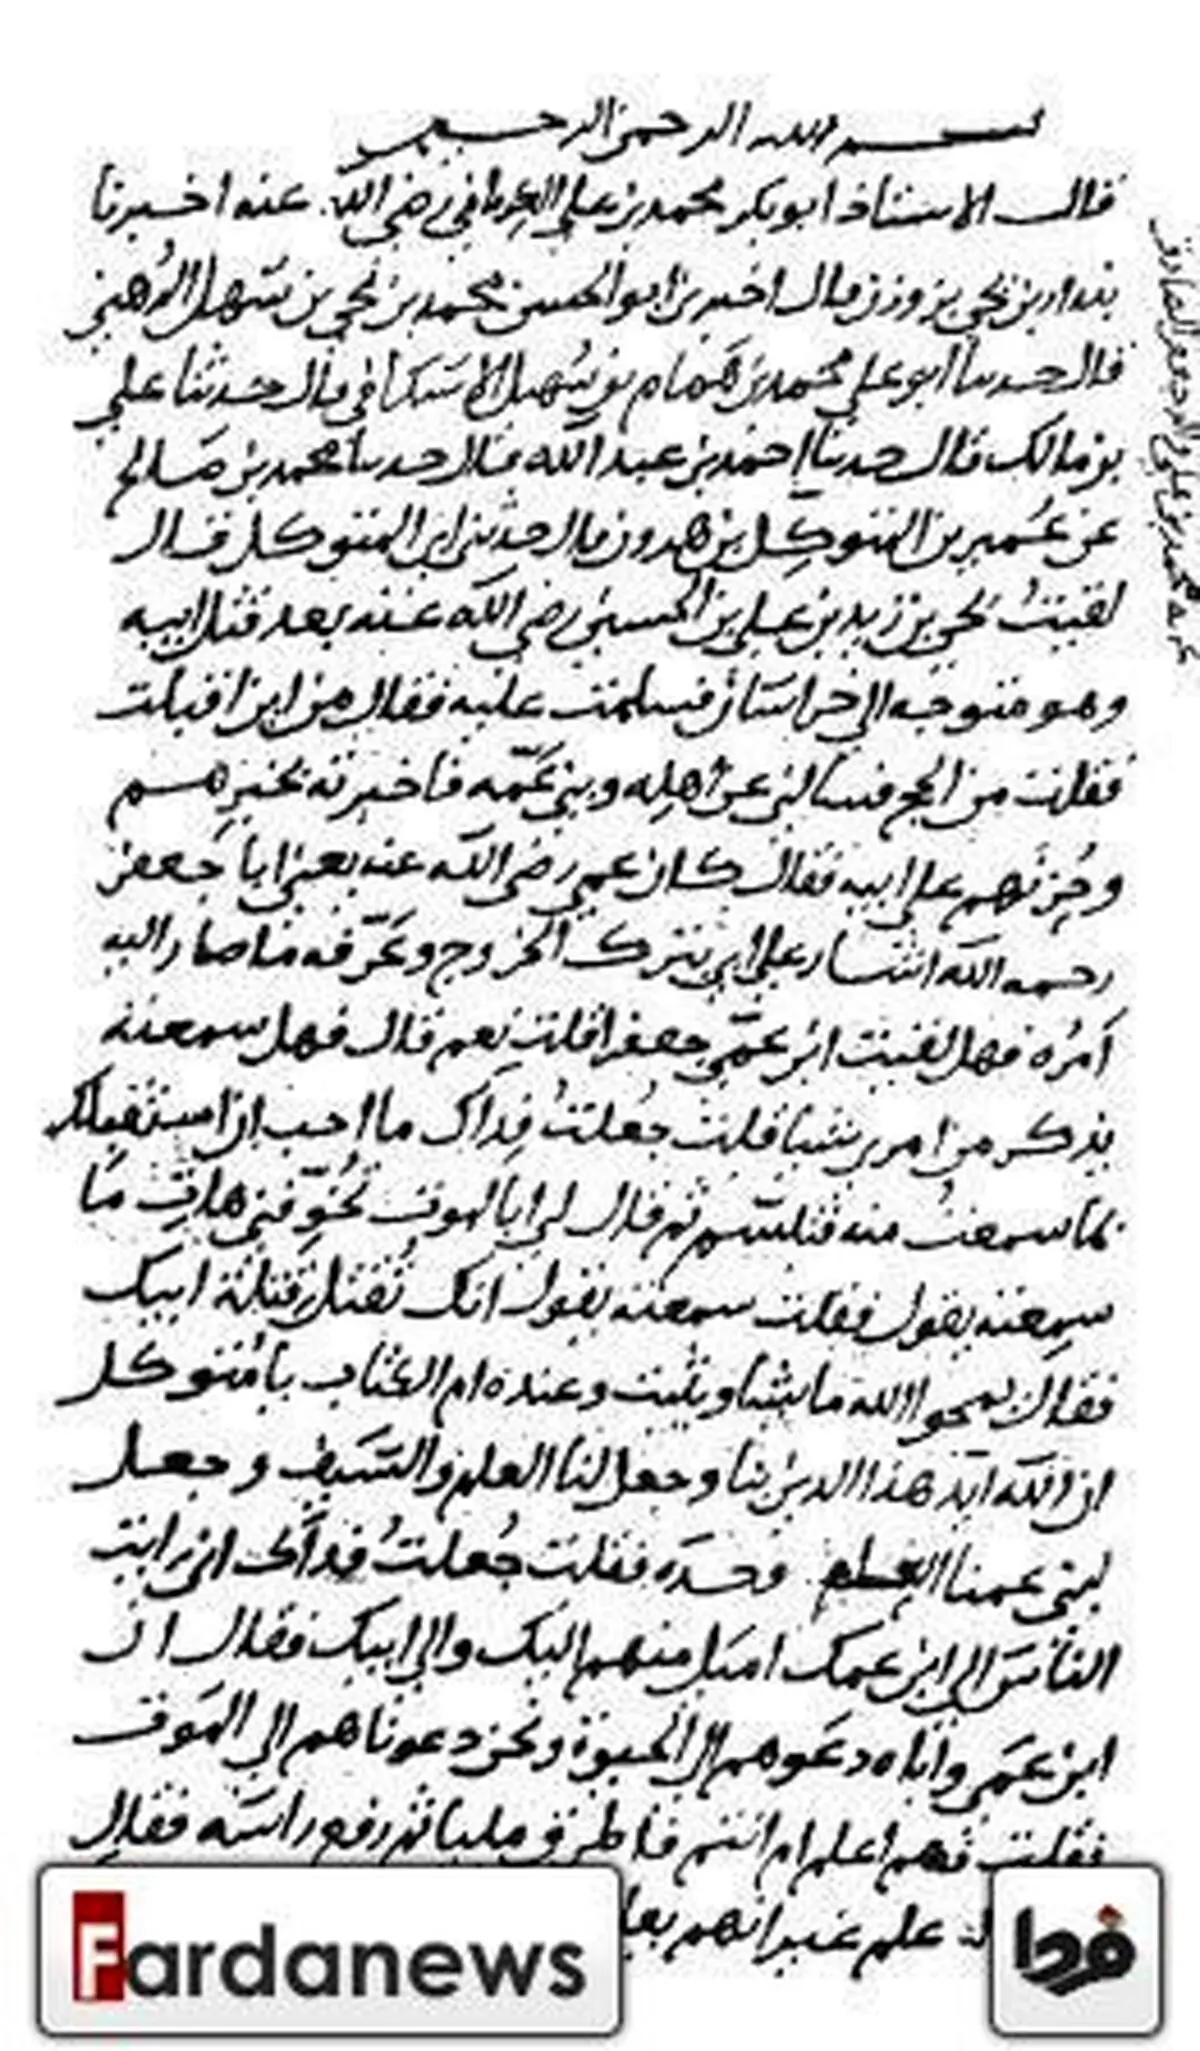 بسم الله الرحمن الرحيم
قال الاستاذ ابوبكر محمد بن علي الكرماني رضي الله عنه اخبرنا
بندار بن يحيى بزوزن قال اخبرنا ابو الحسن محمد بن يحيى بن سهل الرهني
قال حدثنا ابو علي محمد بن همام بن سهيل الاسكافي قال حدثنا علي
بن مالك قال حدثنا احمد بن عبد الله قال حدثنا محمد بن صالح
عن عمير بن المتوكل بن هرون قال حدثني ابي المتوكل قال
لقيت يحيى بن زيد بن علي بن الحسين رضي الله عنه بعد قتل ابيه
وهو متوجه الى خراسان فسلمت عليه فقال من اين اقبلت
فقلت من الحج فسالني عن اهله وبني عمه فاخبرته بخبرهم
وحزنهم على ابيه فقال كان عمي رضي الله عنه يعني ابا جعفر
رحمه الله اشار على ابي بترك الخروج وعرفه ما صار اليه
امره فهل لقيت ابن عمي جعفرا قلت نعم قال فهل سمعته
يذكر من امري شيا قلت جعلت فداك ما احب ان استقبلك
بما سمعت منه فتبسم ثم قال لي ابالموت تخوفني هات ما
سمعته يقول فقلت سمعته يقول انك تقتل قتلة ابيك
فقال يمحوا الله ما يشا ويثبت وعنده ام الكتاب يا متوكل
ان الله ايد هذا الدين بنا وجعل لنا العلم والسيف وجعل
لبني عمنا العلم وحده فقلت جعلت فداك اني رايت
الناس الى ابن عمك اميل منهم اليك والى ابيك فقال ان
ابن عمي واباه دعوهم الى الحيوة ونحن دعوناهم الى الموت
فقلت فهم اعلم ام انتم فاطرق مليا ثم رفع راسه فقال
علم غير انهم
Fardanews
فردا